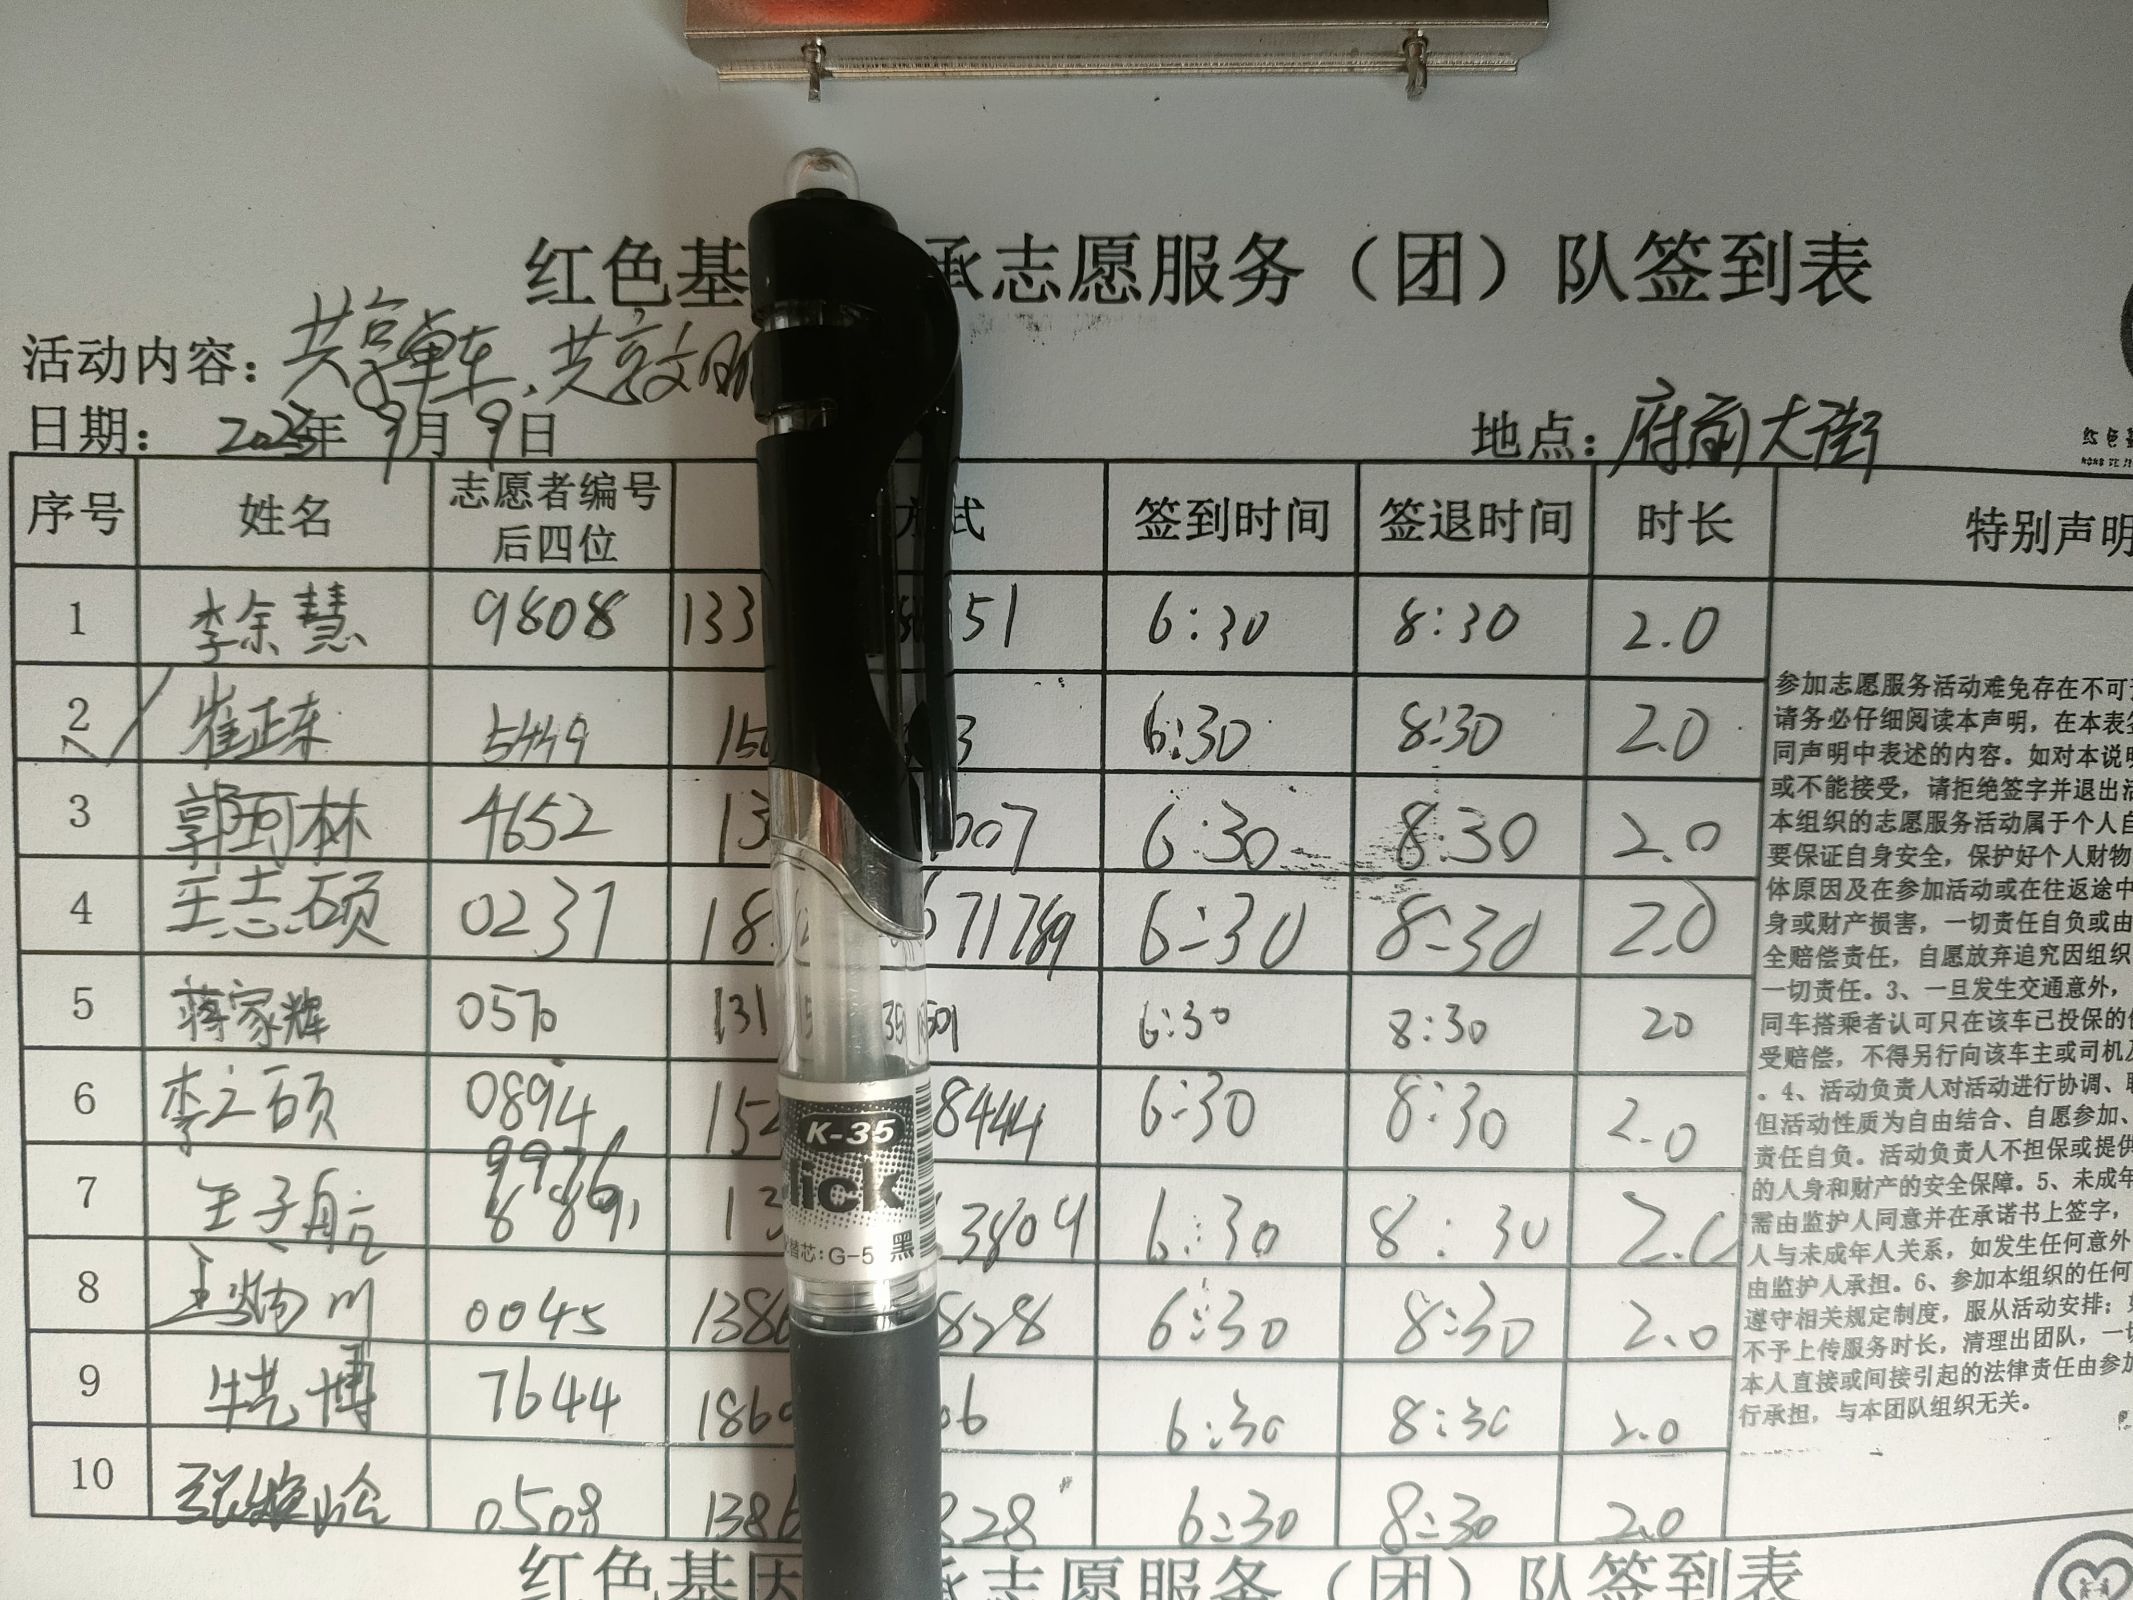 红色基 承志愿服务（团）队签到表
活动内容：共享单车、共享文明
日期： 2023年 9月 9日 地点：府前大街
序号 姓名 志愿者编号后四位 方式 签到时间 签退时间 时长 特别声明
1 李余慧 9808 133 51 6:30 8:30 2.0
2 崔正东 5449 150 3 6:30 8:30 2.0
3 郭珂林 4652 13 007 6:30 8:30 2.0
4 王志硕 0237 18 671789 6:30 8:30 2.0
5 蒋家辉 0570 131 6:30 8:30 20
6 李之硕 0894 152 8444 6:30 8:30 2.0
7 王子航 9976 13 13804 6:30 8:30 2.0
8 川 0045 1386 828 6:30 8:30 2.0
9 博 7644 186 06 6:30 8:30 2.0
10 张 0508 1386 828 6:30 8:30 2.0
参加志愿服务活动难免存在不可
请务必仔细阅读本声明，在本表
同声明中表述的内容。如对本说明
或不能接受，请拒绝签字并退出活
本组织的志愿服务活动属于个人自
要保证自身安全，保护好个人财物
体原因及在参加活动或在往返途中
身或财产损害，一切责任自负或由
全赔偿责任，自愿放弃追究因组织
一切责任。3、一旦发生交通意外，
同车搭乘者认可只在该车已投保的
受赔偿，不得另行向该车主或司机及
。4、活动负责人对活动进行协调、联
但活动性质为自由结合、自愿参加、
责任自负。活动负责人不担保或提供
的人身和财产的安全保障。5、未成年
需由监护人同意并在承诺书上签字，
人与未成年人关系，如发生任何意外
由监护人承担。6、参加本组织的任何
遵守相关规定制度，服从活动安排；如
不予上传服务时长，清理出团队，一切
本人直接或间接引起的法律责任由参加
行承担，与本团队组织无关。
K-35
lick
替芯:G-5 黑
红色基因 承志愿服务（团）队签到表